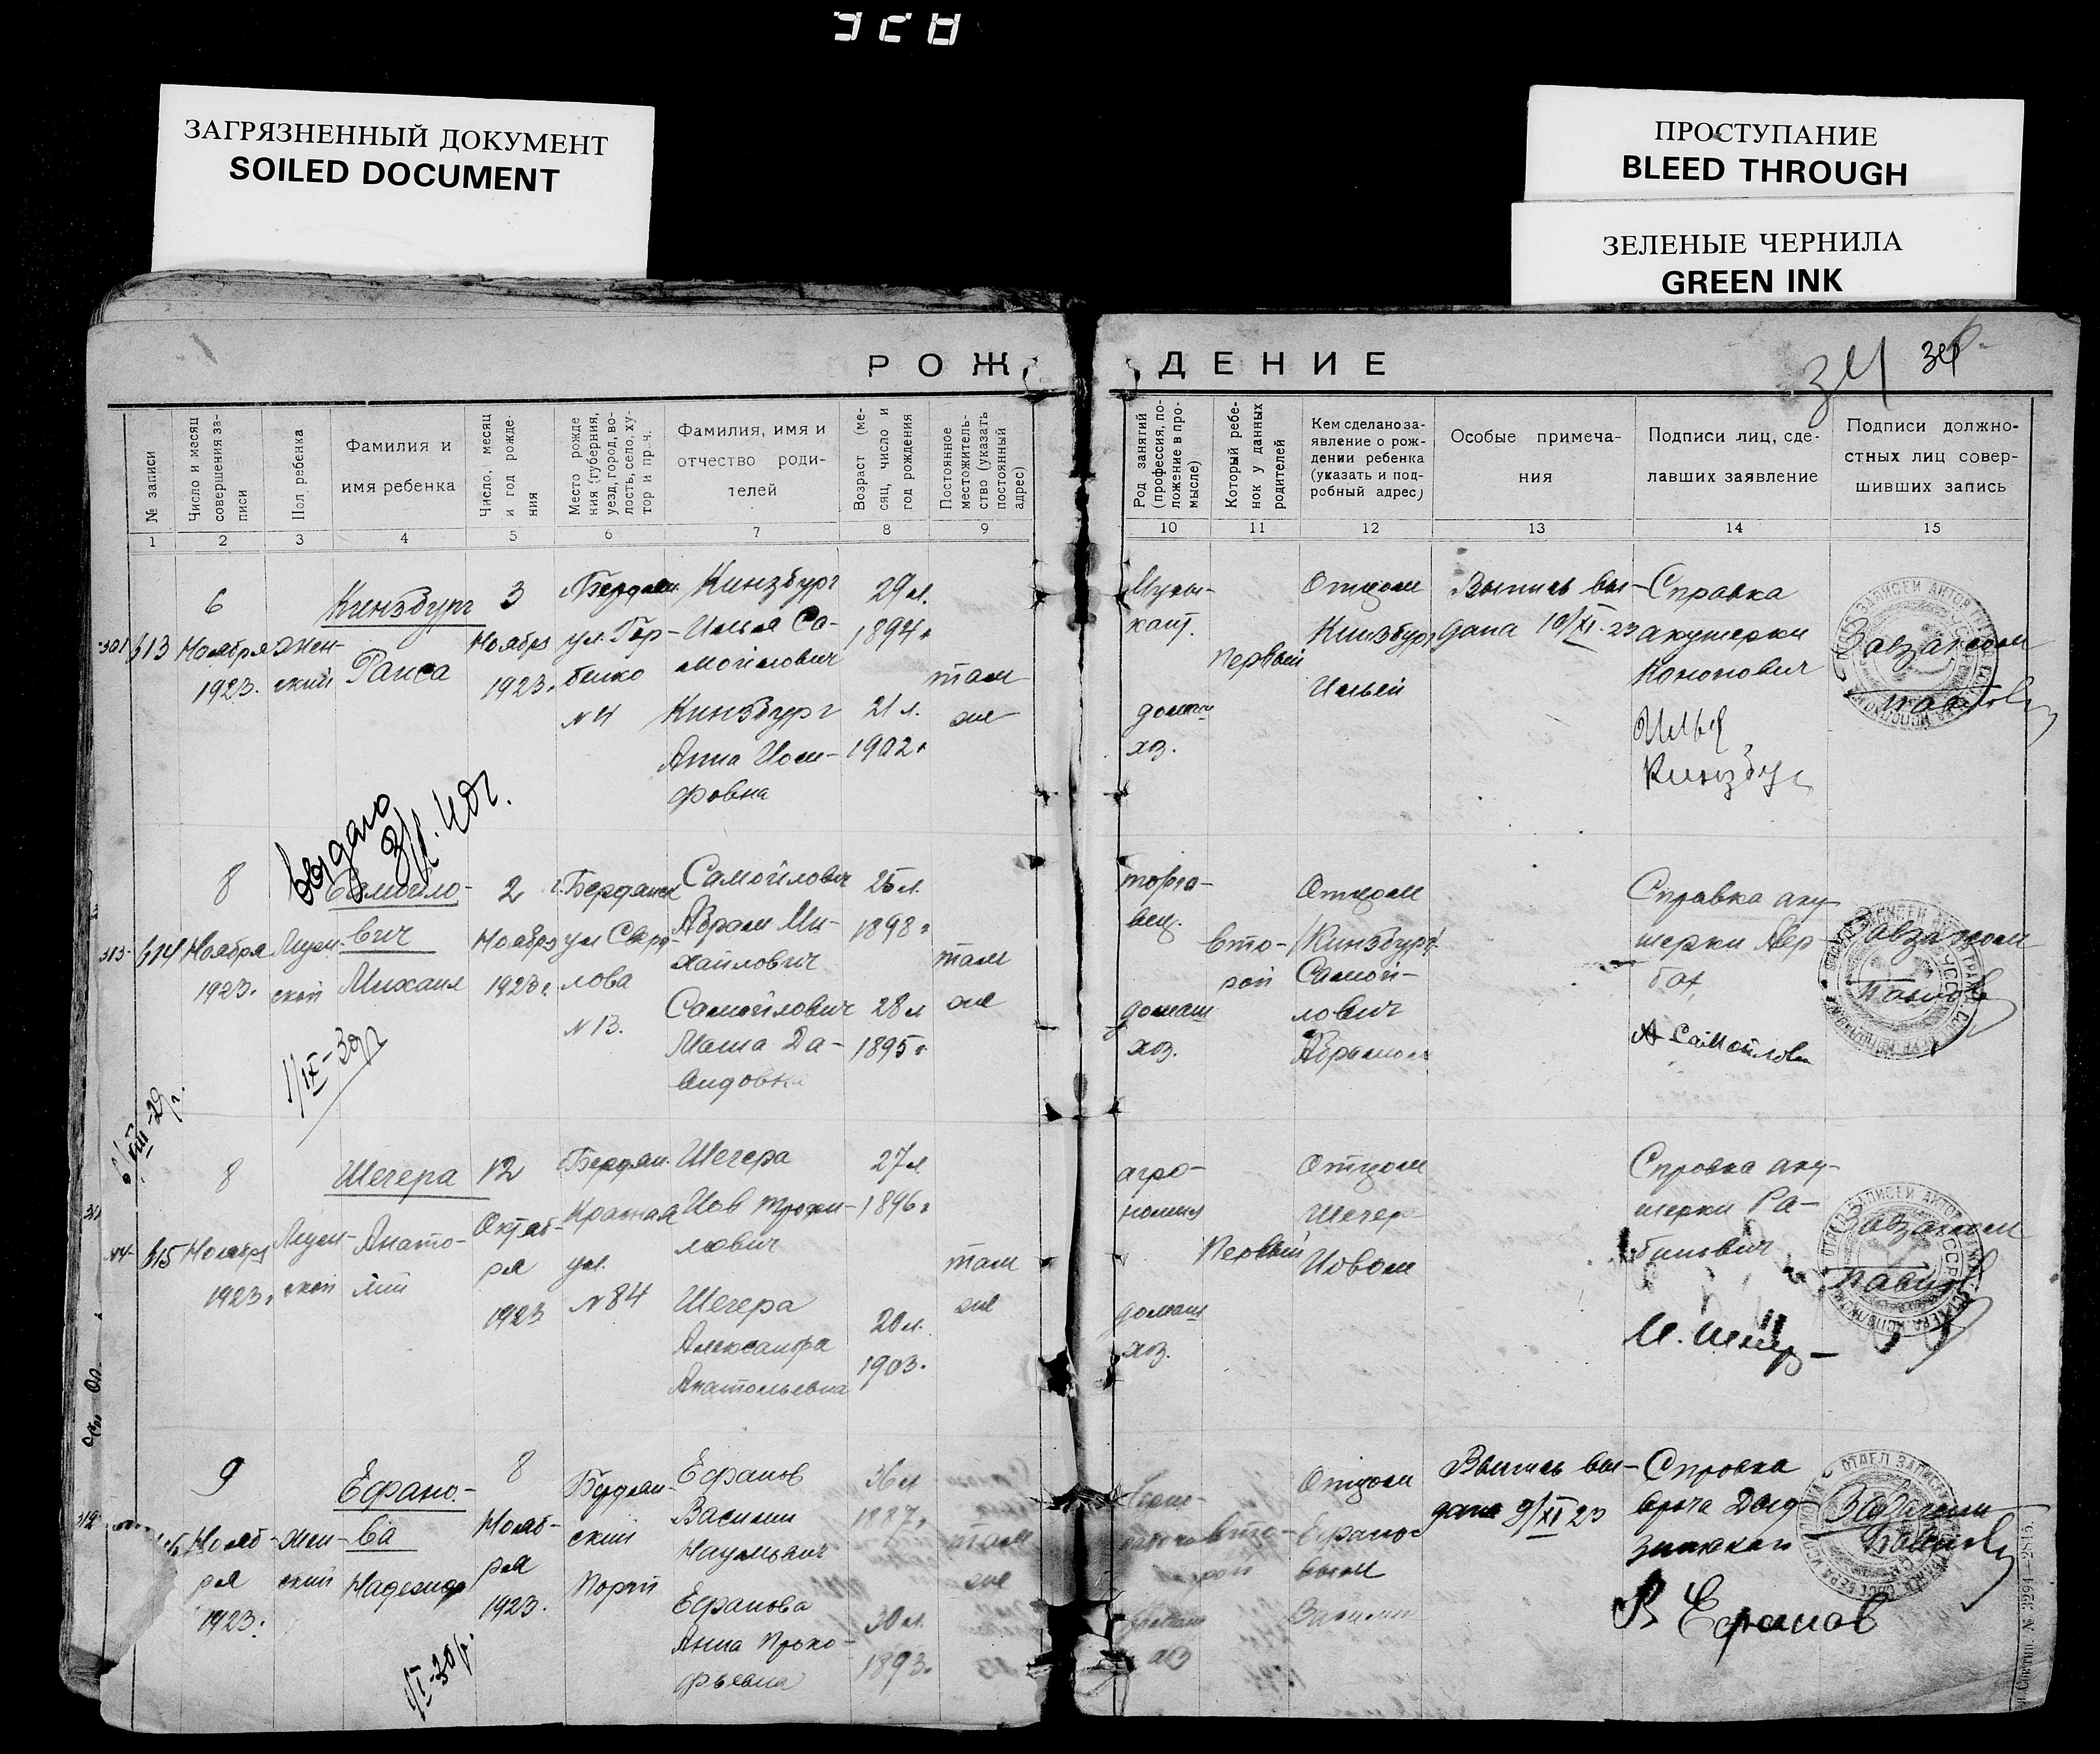 328
ЗАГРЯЗНЕННЫЙ ДОКУМЕНТ
SOILED DOCUMENT
ПРОСТУПАНИЕ
BLEED THROUGH
ЗЕЛЕНЫЕ ЧЕРНИЛА
GREEN INK
РОЖДЕНИЕ
34
№ записи
Число и месяц совершения записи
Пол ребенка
Фамилия и
имя ребенка
Число, месяц и год рождения
Место рождения (губерния, уезд, город, волость, село, хутор и пр.ч.
Фамилия, имя и
отчество роди-
телей
Возраст (месяц, число и год рождения
Постоянное местожительство (указать постоянный адрес)
Род занятий (профессия, положение в промысле)
Который ребенок у данных родителей
Кем сделано за-
явление о рож-
дении ребенка
(указать и под-
робный адрес)
Особые примеча-
ния
Подписи лиц, сде-
лавших заявление
Подписи должно-
стных лиц совер-
шивших запись
1 2 3 4 5 6 7 8 9 10 11 12 13 14 15
613
6
Ноября
1923.
Жен-
ский
Кинзбург
Раиса
3
Ноября
1923.
Бердян.
ул. Гор-
бенко
№ 4
Кинзбург
Илья Са-
мойлович
Кинзбург
Анна Иоси-
фовна
29 л.
1894 г.
21 л.
1902 г.
там
же
Музы-
кант.
домаш
хоз.
Первый
Отцом
Кинзбург
Ильей
Выпись вы-
дана 10/XI.23
Справка
акушерки
Кононович
Илья
Кинзбур
Завзагсом
выдано
3/I.40г.
614
8
Ноября
1923.
Муж-
ской
Самойло-
вич
Михаил
2
Ноября
1923 г.
г. Бердянск
ул Сверд-
лова
№ 13.
Самойлович
Абрам Ми-
хайлович
Самойлович
Маша Да-
видовна
25 л.
1898 г
28 л
1895 г.
там
же
торго-
вец.
домаш
хоз.
Вто-
рой
Отцом
/Кинзбург/
Самой-
лович
Абрамом
Справка аку-
шерки
А Самойлов
Завзагсом
1/IX-39г
6/VIII-29г.
615
8
Ноября
1923.
Муж-
ской
Шегера
Анато-
лий
12
Октяб-
ря
1923
Бердян.
Красная
ул.
№ 84
Шегера
Иов Трофи-
мович
Шегера
Александра
Анатольевна
27 л.
1896 г
20 л.
1903.
там
же
агро-
номия
домаш
хоз.
Первый
Отцом
Шегера
Иовом
Справка аку-
шерки Ра-
бинович
Завзагсом
9
Нояб-
ря
1923.
Жен-
ский
Ефано-
ва
Надежда
8
Нояб-
ря
1923.
Бердян-
ский
Порт
Ефанов
Василий
Наумович
Ефанова
Анна Проко-
фьевна
36 л
1887 г
30 л.
1893.
там
же
вто-
рой
Отцом
Ефано-
вым
Василий
Выпись вы-
дана 9/XI 23
Справка
врача
В Ефанов
Завзагсом
1/I-30г.
№ 3294—2815.